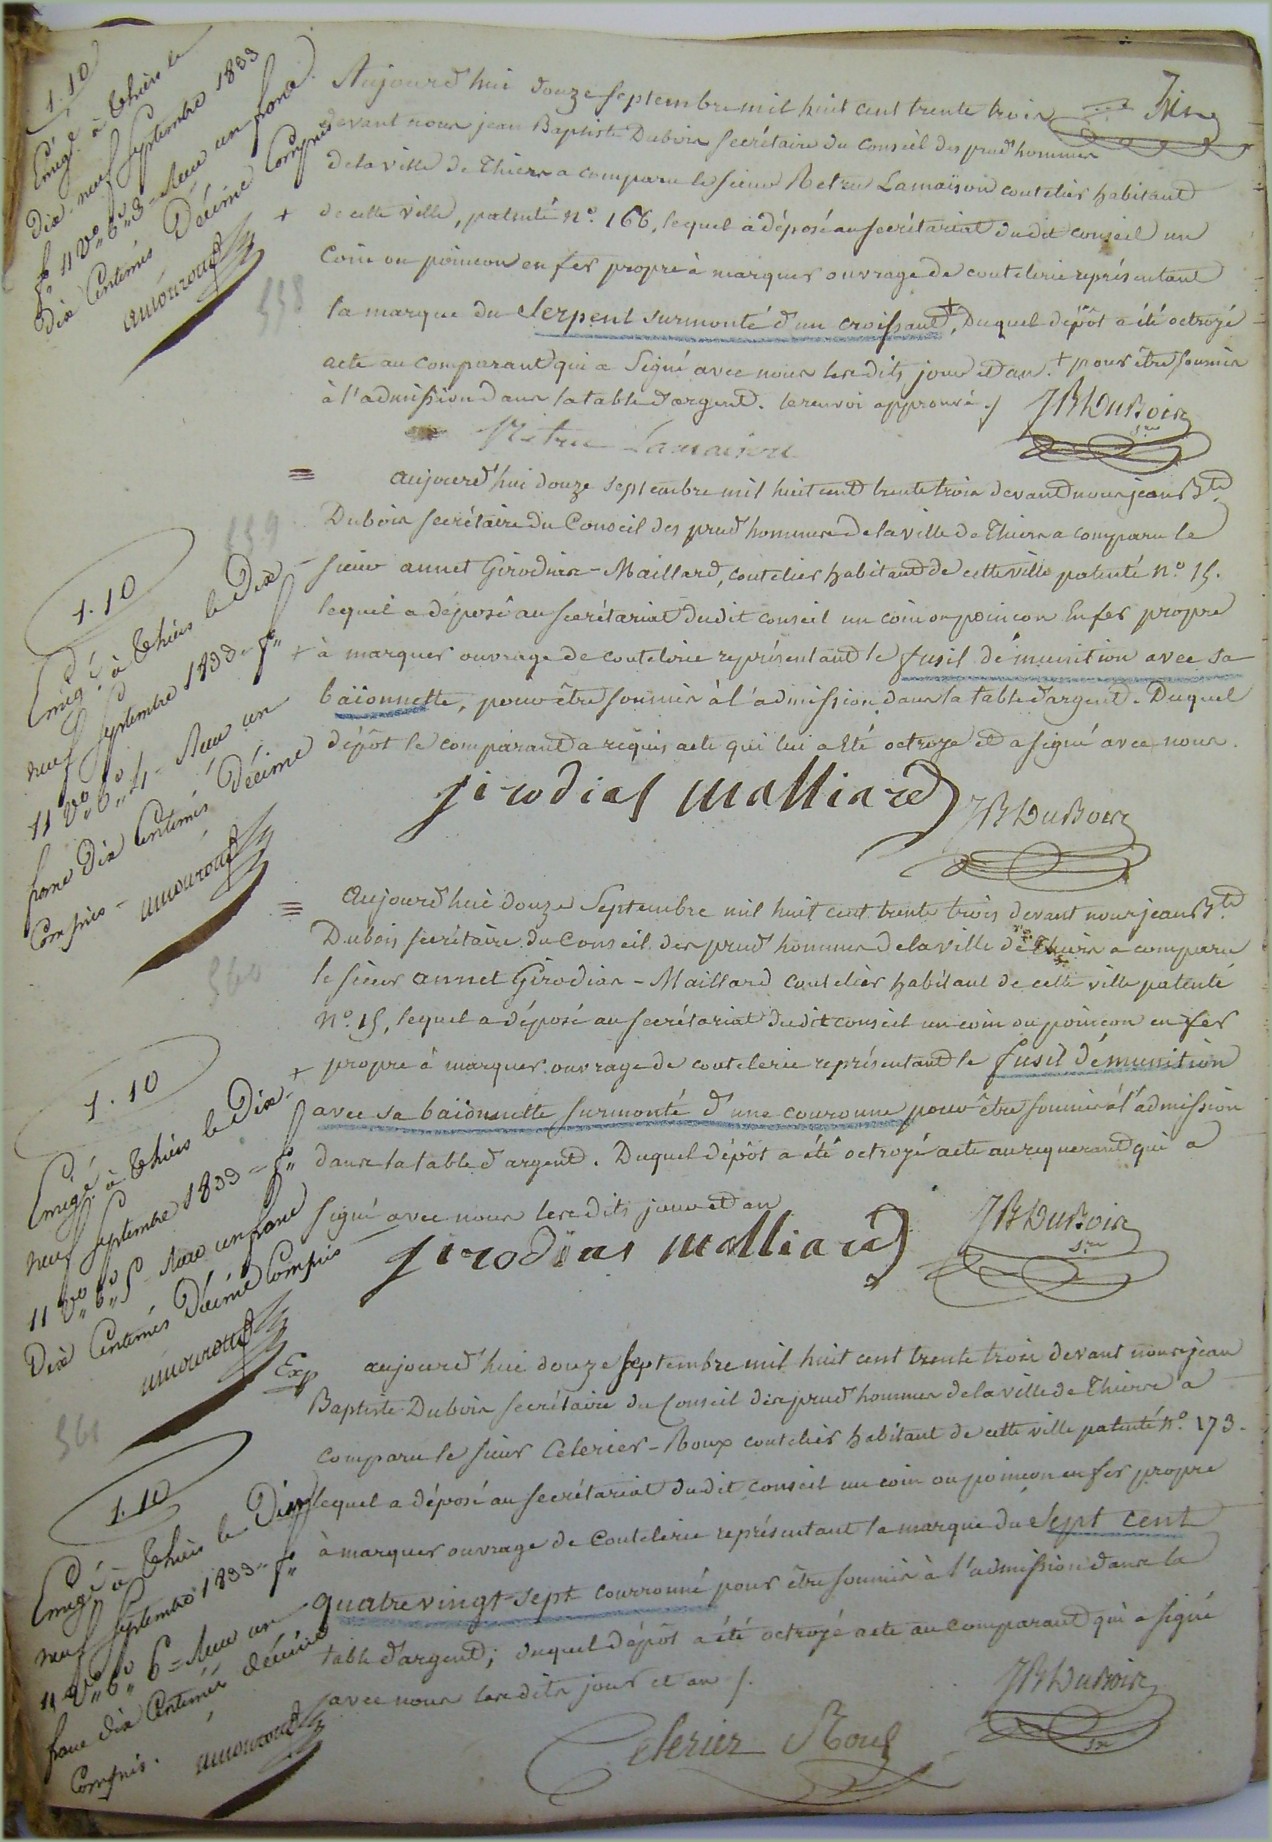 1.10
Enrgé à Thiers le
dix neuf septembre 1833
fo 11 Vo, Co 3 = Reçu un franc
dix Centimes Décime Compris
amouroux
558
Aujourd'hui douze septembre mil huit cent trente trois
devant nous jean Baptiste Dubois secrétaire du Conseil des prud'hommes
de la ville de Thiers a comparu le sieur Retru Lamaison coutelier habitant
+ de cette ville, patenté No. 166, lequel a déposé au secrétariat dudit conseil un
Coin ou poincon en fer propre à marquer ouvrage de coutelerie représentant
la marque du Serpent surmonté d'un croissant +, Duquel dépôt a été octroyé
acte au comparant qui a Signé avec nous lesdits jour et an. + pour être soumis
à l'admission dans la table d'argent. le renvoi approuvé ./ JBDuBois
sre
Retru Lamaison
559
1.10
Enrgé à Thiers le Dix
neuf Septembre 1833 = fo
11 Vo, Co 4 = Reçu un
franc dix Centimes Décime
Compris =
amouroux
aujourd'hui douze septembre mil huit cent trente trois devant nous jean Bte
Dubois secrétaire du Conseil des prud'hommes de la ville de Thiers a comparu le
sieur annet Girodias-Maillard, coutelier habitant de cette ville patenté No. 15.
lequel a déposé au secrétariat dudit conseil un coin ou poincon En fer propre
+ à marquer ouvrage de coutelerie représentant le fusil de munition avec sa
baïonnette, pour être soumis à l'admission dans la table d'argent. Duquel
dépôt le comparant a requis acte qui lui a été octroyé et a signé avec nous.
girodias malliard JBDuBois
560
1.10
Enrgé à Thiers le Dix
neuf Septembre 1833 = fo
11 Vo, Co 5 = Reçu un franc
Dix Centimes Décime Compris
amouroux
aujourd'hui douze Septembre mil huit cent trente trois devant nous jean Bte
Dubois secrétaire du Conseil des prud'hommes de la ville de Thiers a comparu
le sieur annet Girodias-Maillard coutelier habitant de cette ville patenté
No. 15, lequel a déposé au secrétariat dudit conseil un coin ou poincon en fer
+ propre à marquer ouvrage de coutelerie représentant le fusil démunition
avec sa baïonnette surmonté d'une couronne pour être soumis à l'admission
dans la table d'argent. Duquel dépôt a été octroyé acte au requerant qui a
signé avec nous lesdits jour et an
girodias malliard JBDuBois
sre
561
1.10
Enrgé à Thiers le Dix
neuf Septembre 1833 = fo
11 Vo, Co 6 = Reçu un
franc dix Centimes décime
Compris.
amouroux
Exp aujourd'hui douze septembre mil huit cent trente trois devant nous jean
Baptiste Dubois secrétaire du Conseil des prud'hommes de la ville de Thiers a
comparu le sieur Celerier-Roux coutelier habitant de cette ville patenté No. 173.
lequel a déposé au secrétariat dudit conseil un coin ou poincon en fer propre
à marquer ouvrage de Coutelerie représentant la marque du Sept cent
quatrevingt-sept courronné pour être soumis à l'admission dans la
table d'argent; duquel dépôt a été octroyé acte au comparant qui a signé
avec nous lesdits jour et an /.
Celerier Roux JBDuBois
sre